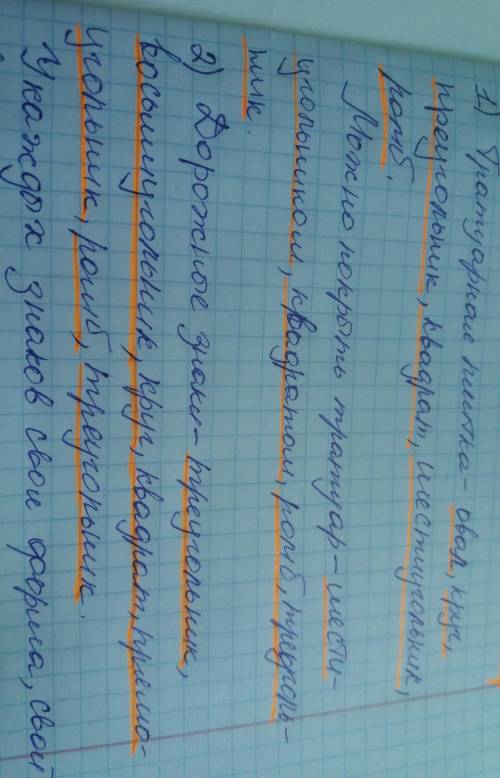 1) Тратуарная плитка - овал, круг,
треугольник, квадрат, шестиугольник,
ромб.
Можно покрыть тратуар - шести-
угольником, квадратом, ромб, треуголь-
ник.
2) Дорожные знаки - треугольник,
восьмиугольник, круг, квадрат, прямо-
угольник, ромб, треугольник.
У каждых знаков своя форма, свой